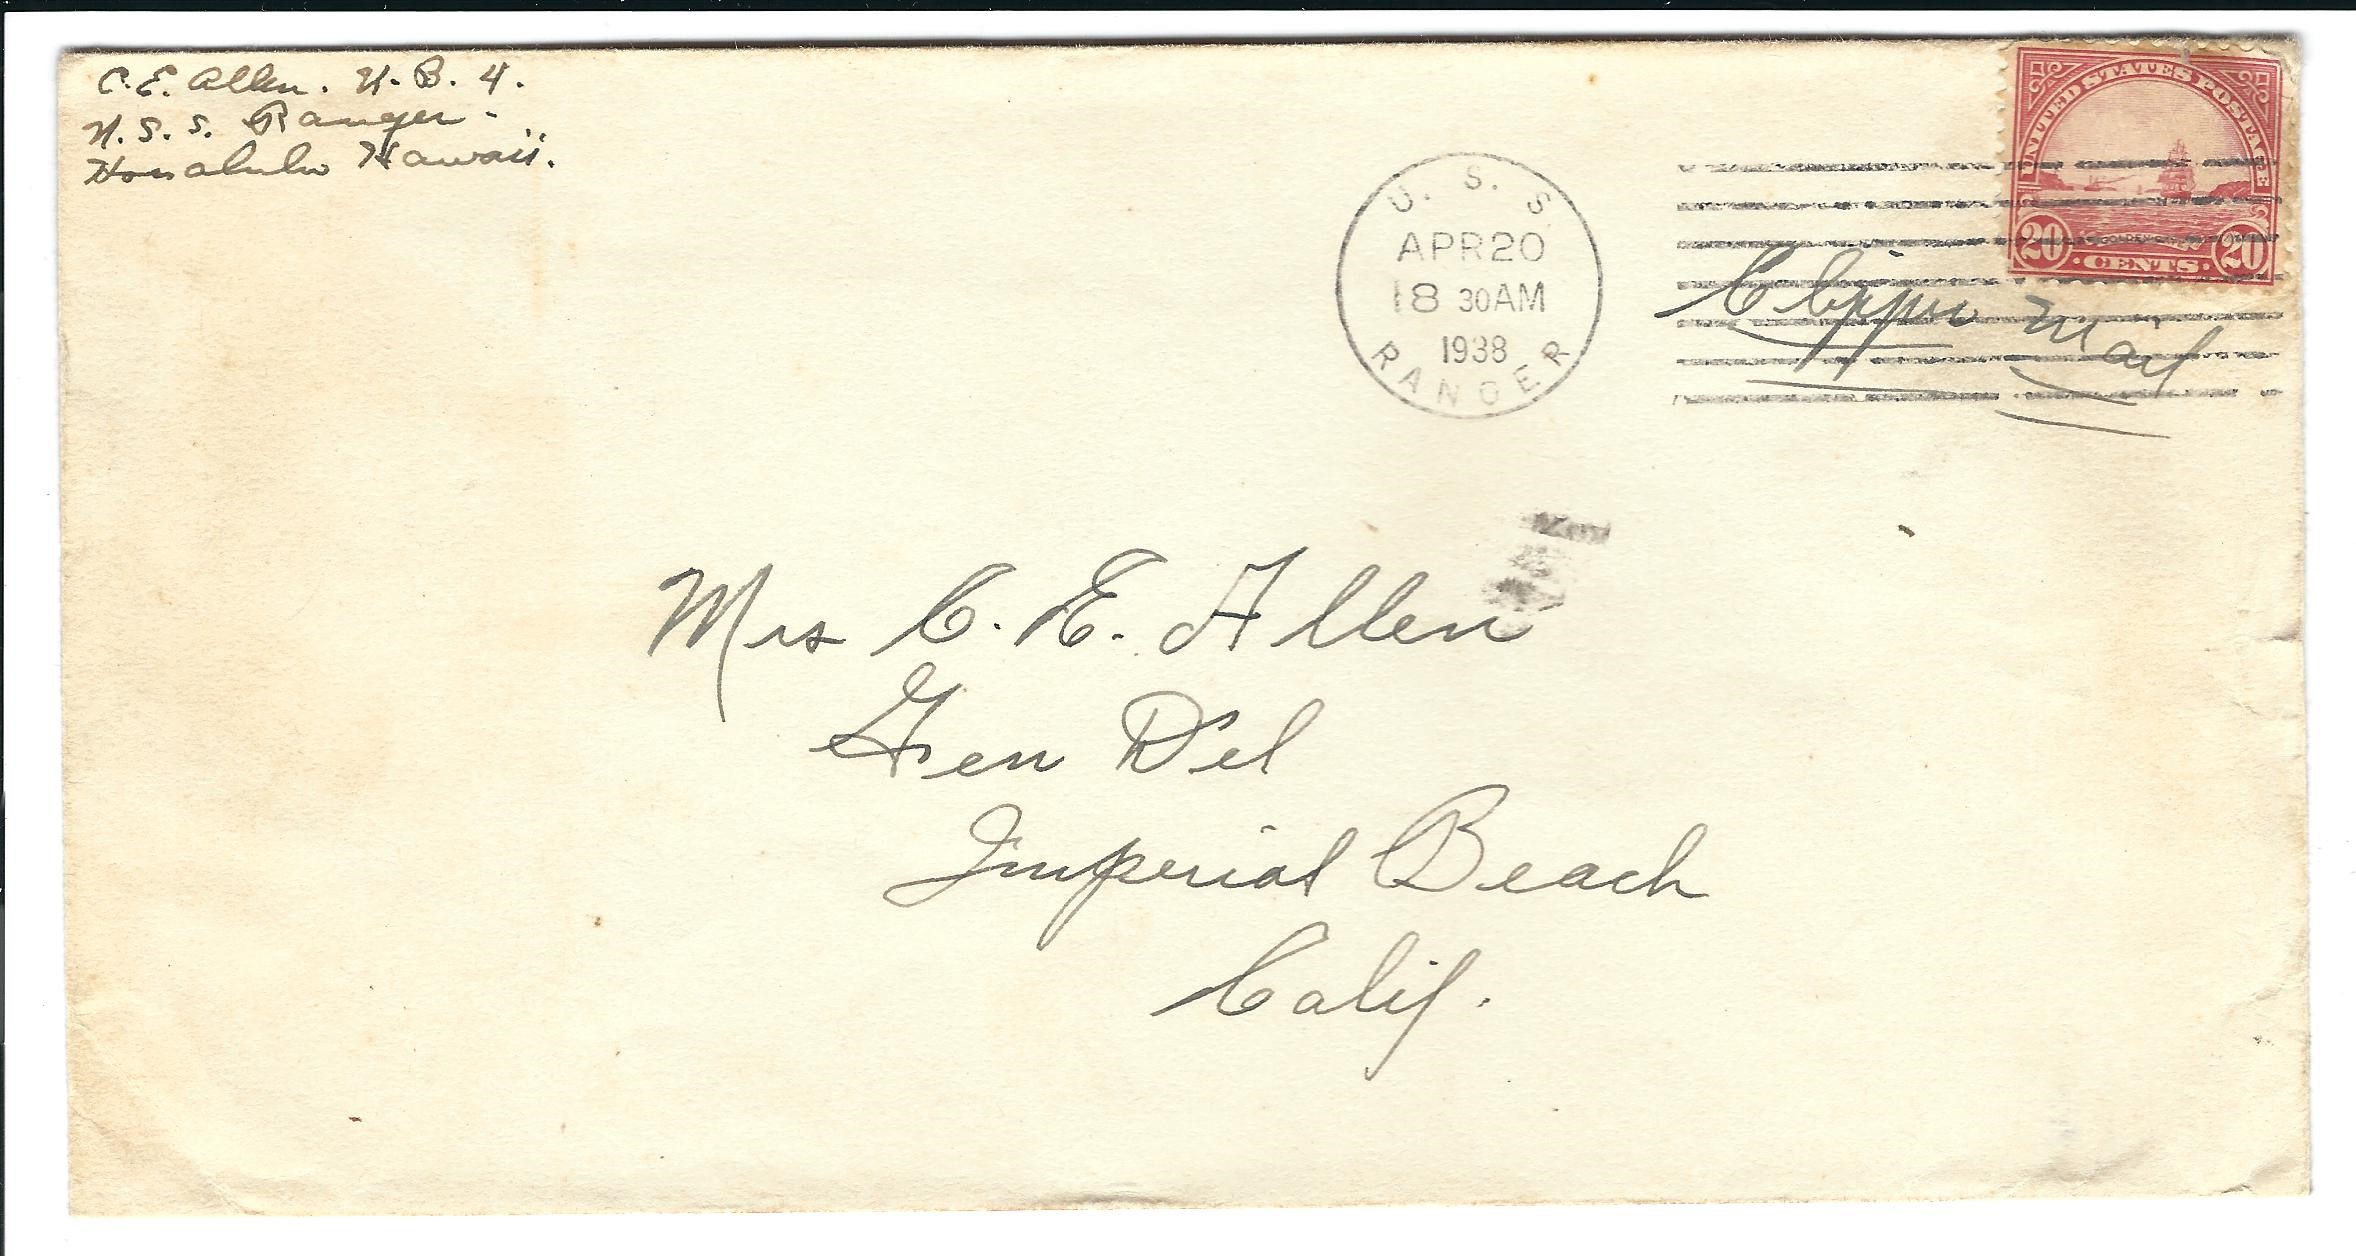 C. E. Allen. V. B. 4.
U. S. S. Ranger.
Honolulu Hawaii.
U. S. S.
APR 20
8 30AM
1938
RANGER
UNITED STATES POSTAGE
GOLDEN GATE
20 CENTS 20
Clipper Mail
Mrs C. E. Allen
Gen Del
Imperial Beach
Calif.